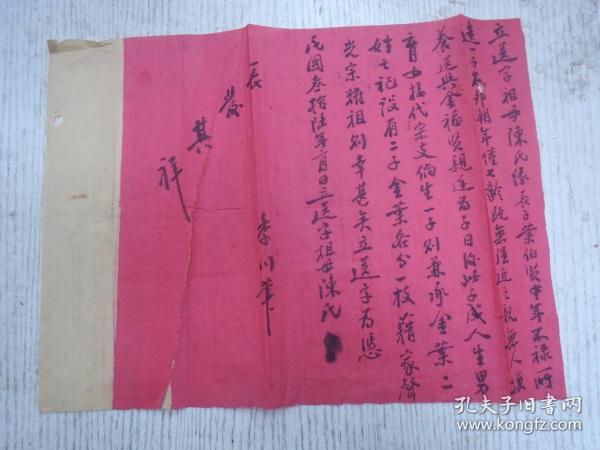 立送字祖母陳氏緣長子葉伯賢中年不祿一所
遠一子名邦朝年僅七齡既無強近之親無人撫
養送與金福賢親逢为子日後此子成人生男
育女接代宗支倘生一子則兼承金葉二
姓之祀設有二子金葉各分一枝藉家聲
光宗耀祖則幸甚矣立送字为憑
民國叁拾陸年 月 日立送字祖母陳氏
長發其祥
季川筆
孔夫子旧书网
www.kongfz.com